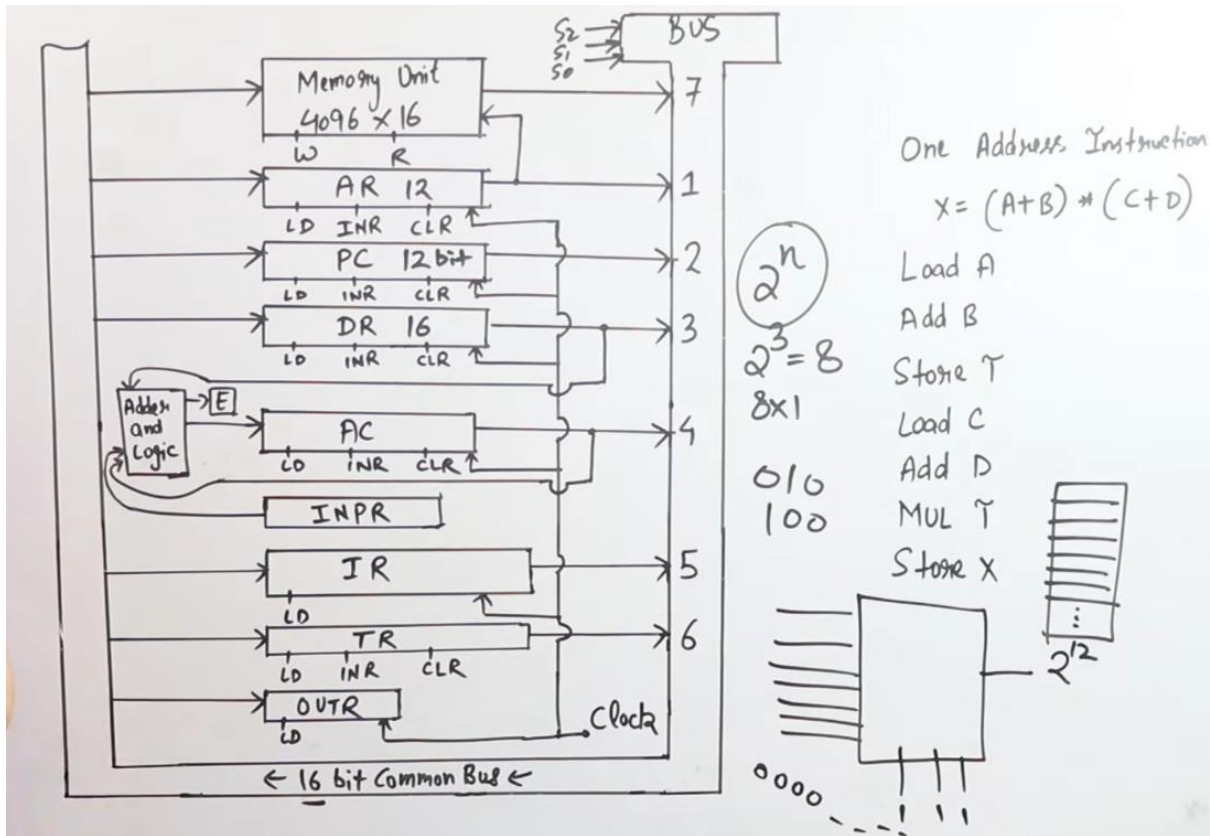 BUS
S2
S1
S0
Memory Unit
4096 × 16
W R
7
AR 12
LD INR CLR
1
PC 12 bit
LD INR CLR
2
DR 16
LD INR CLR
3
Adder
and
Logic
E
AC
LD INR CLR
4
INPR
IR
LD
5
TR
LD INR CLR
6
OUTR
LD
Clock
← 16 bit Common Bus ←
2ⁿ
2³ = 8
8×1
010
100
One Address Instruction
X = (A+B) * (C+D)
Load A
Add B
Store T
Load C
Add D
MUL T
Store X
2¹²
0000